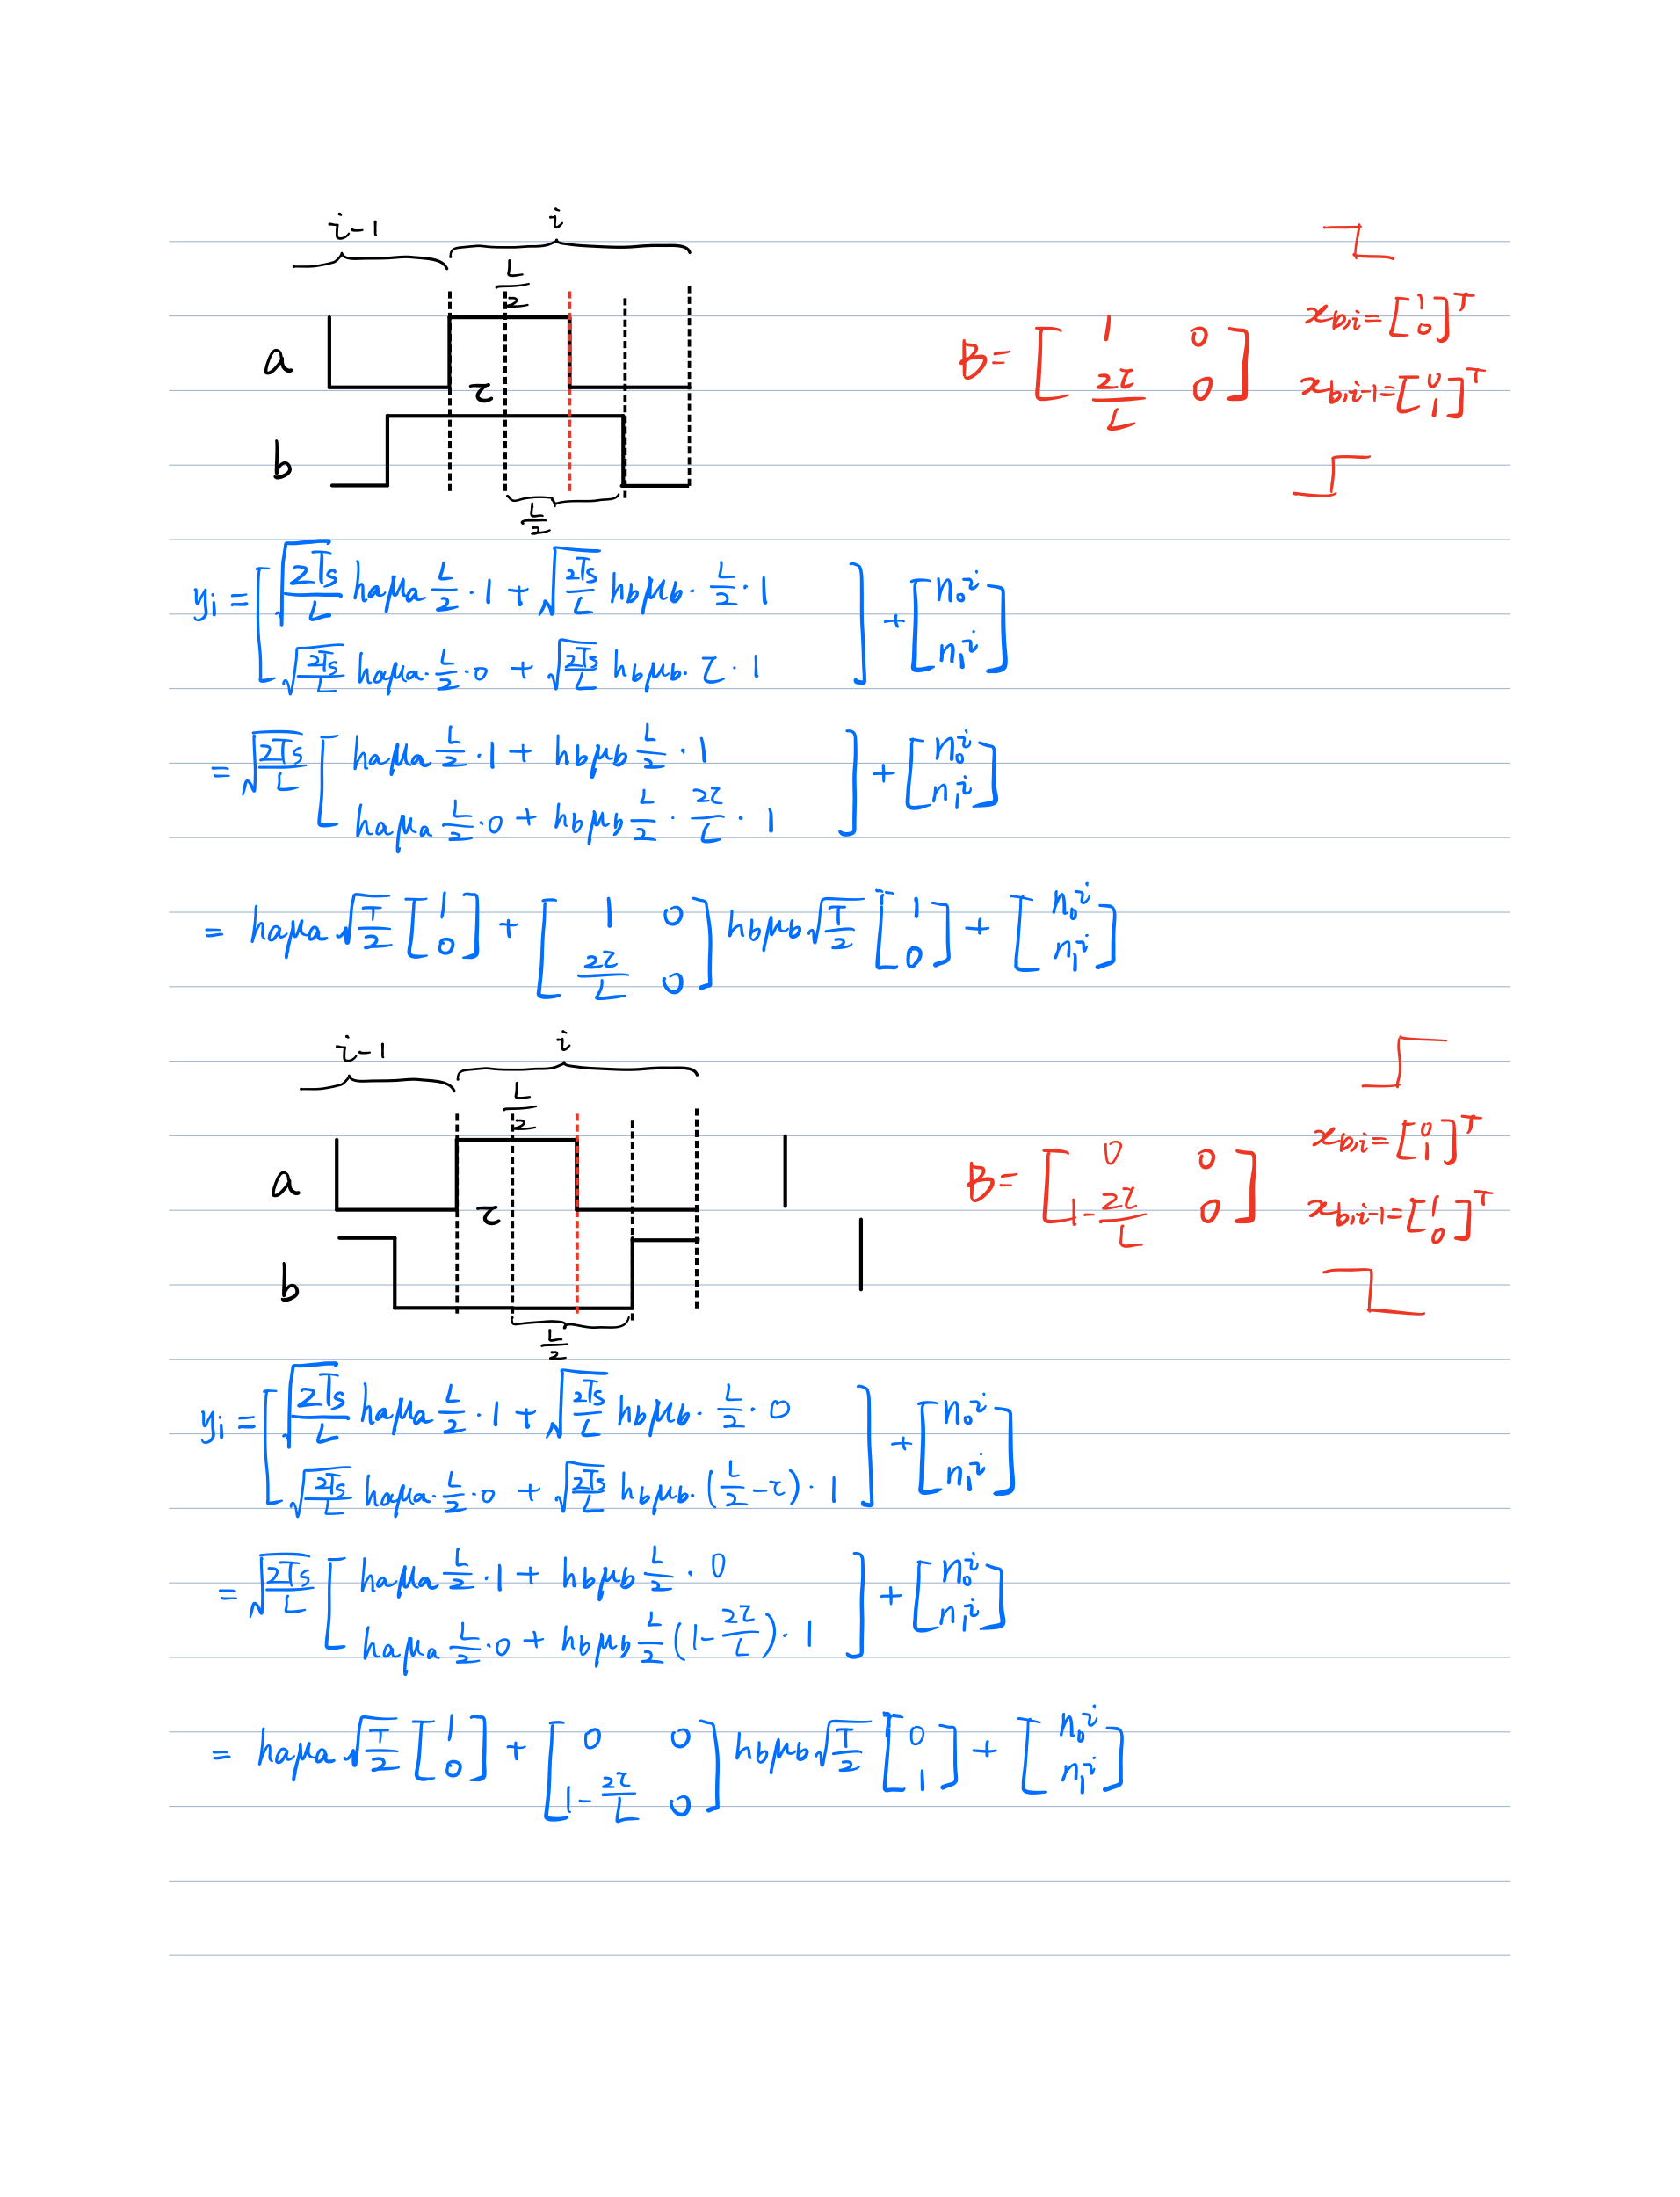 i-1 i
L/2
a
τ
b
L/2
B= [ 1 0 ; 2τ/L 0 ]
x_{b,i}= [ 1 ; 0 ]^T
x_{b,i-1}= [ 0 ; 1 ]^T
y_i = [ √(2Ts/L) haμa L/2 · 1 + √(2Ts/L) hbμb · L/2 · 1 ; √(2Ts/L) haμa · L/2 · 0 + √(2Ts/L) hbμb · τ · 1 ] + [ n_0^i ; n_1^i ]
= √(2Ts/L) [ haμa L/2 · 1 + hbμb L/2 · 1 ; haμa L/2 · 0 + hbμb L/2 · 2τ/L · 1 ] + [ n_0^i ; n_1^i ]
= haμa √(T/2) [ 1 ; 0 ] + [ 1 0 ; 2τ/L 0 ] hbμb √(T/2) [ 1 ; 0 ] + [ n_0^i ; n_1^i ]
i-1 i
L/2
a
τ
b
L/2
B= [ 0 0 ; 1-2τ/L 0 ]
x_{b,i}= [ 0 ; 1 ]^T
x_{b,i-1}= [ 1 ; 0 ]^T
y_i = [ √(2Ts/L) haμa L/2 · 1 + √(2Ts/L) hbμb · L/2 · 0 ; √(2Ts/L) haμa · L/2 · 0 + √(2Ts/L) hbμb · (L/2 - τ) · 1 ] + [ n_0^i ; n_1^i ]
= √(2Ts/L) [ haμa L/2 · 1 + hbμb L/2 · 0 ; haμa L/2 · 0 + hbμb L/2 (1-2τ/L) · 1 ] + [ n_0^i ; n_1^i ]
= haμa √(T/2) [ 1 ; 0 ] + [ 0 0 ; 1-2τ/L 0 ] hbμb √(T/2) [ 0 ; 1 ] + [ n_0^i ; n_1^i ]